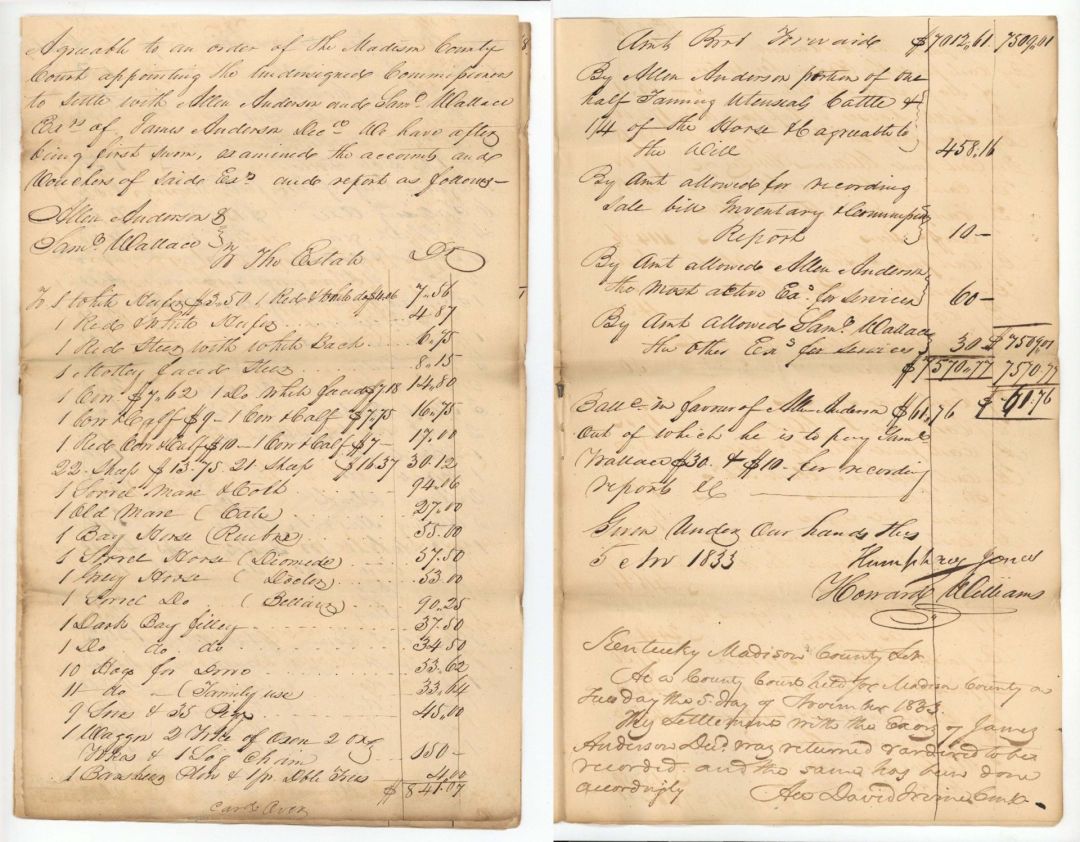 Agreeable to an order of the Madison County
Court appointing the undersigned Commissioners
to settle with Allen Anderson and Saml. Wallace
Exrs of James Anderson Decd We have after
being first sworn, examined the accounts and
Vouchers of said Exrs and report as follows—
Allen Anderson &
Saml Wallace To The Estate Dr
To 1 white Heifer $3.50. 1 Red & White do $4.06 7.56
1 Red & White Heifer 4.87
1 Red Steer with white Back 6.75
1 Motley faced Steer 8.15
1 Cow $7.62 1 Do White faced $7.18 14.80
1 Cow & Calf $9 - 1 Cow & Calf $7.75 16.75
1 Red Cow & Calf $10 - 1 Cow & Calf $7 - 17.00
22 Sheep $13.75 21 Sheep $16.37 30.12
1 Sorrel Mare & Colt 94.06
1 Old Mare (Cate) 27.00
1 Bay Horse (Reuben) 55.00
1 Sorrel Horse (Diomede) 57.50
1 Grey Horse (Doctor) 53.00
1 Sorrel Do 90.25
1 Dark Bay filley 37.50
1 Do do do 34.50
10 Hogs for 53.62
11 do - (Family use 33.64
9 Sows & 35 Pigs 45.00
1 Waggon 2 Yoke of Oxen 2 Oxg
Yokes & 1 Log Chain 150 -
1 Barshear Plow & 1 pr. Dble Trees 4.00
$841.07
Card Over
8
Amt Brot Forward $7012.61 7509.01
By Allen Anderson portion of one
half Tanning Utensals Cattle &
1/4 of the Horse &c agreeable to
the Will 458.16
By Amt allowed for recording
Sale bill Inventory & Commissrs
Report 10 -
By Amt allowed Allen Anderson
the most active Exr for services 60 -
By Amt Allowed Saml Wallace
the other Exr for services 30 $7509.01
$7570.77 7570.77
Ballce in favour of Allen Anderson $61.76 $61.76
Out of which he is to pay Saml
Wallace $30 & $10 for recording
reports &C
Given Under Our hands this
5 Nov 1833
Humphrey Jones
Howard Williams
Kentucky Madison County Sct
At a County Court held for Madison County on
Tuesday the 5 day of November 1833
This Settlement with the Exors of James
Anderson Decd was returned & ordered to be
recorded and the same has been done
accordingly
Att David Irvine Clk